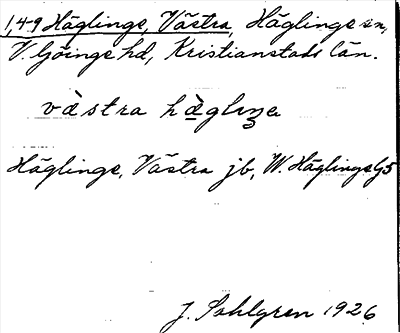 1,4-9 Häglinge, Västra, Häglinge sn,
V. Göinge hd, Kristianstads län.
västra hä̀glinge
Häglinge, Västra jb, W. Häglinge
J. Sahlgren 1926